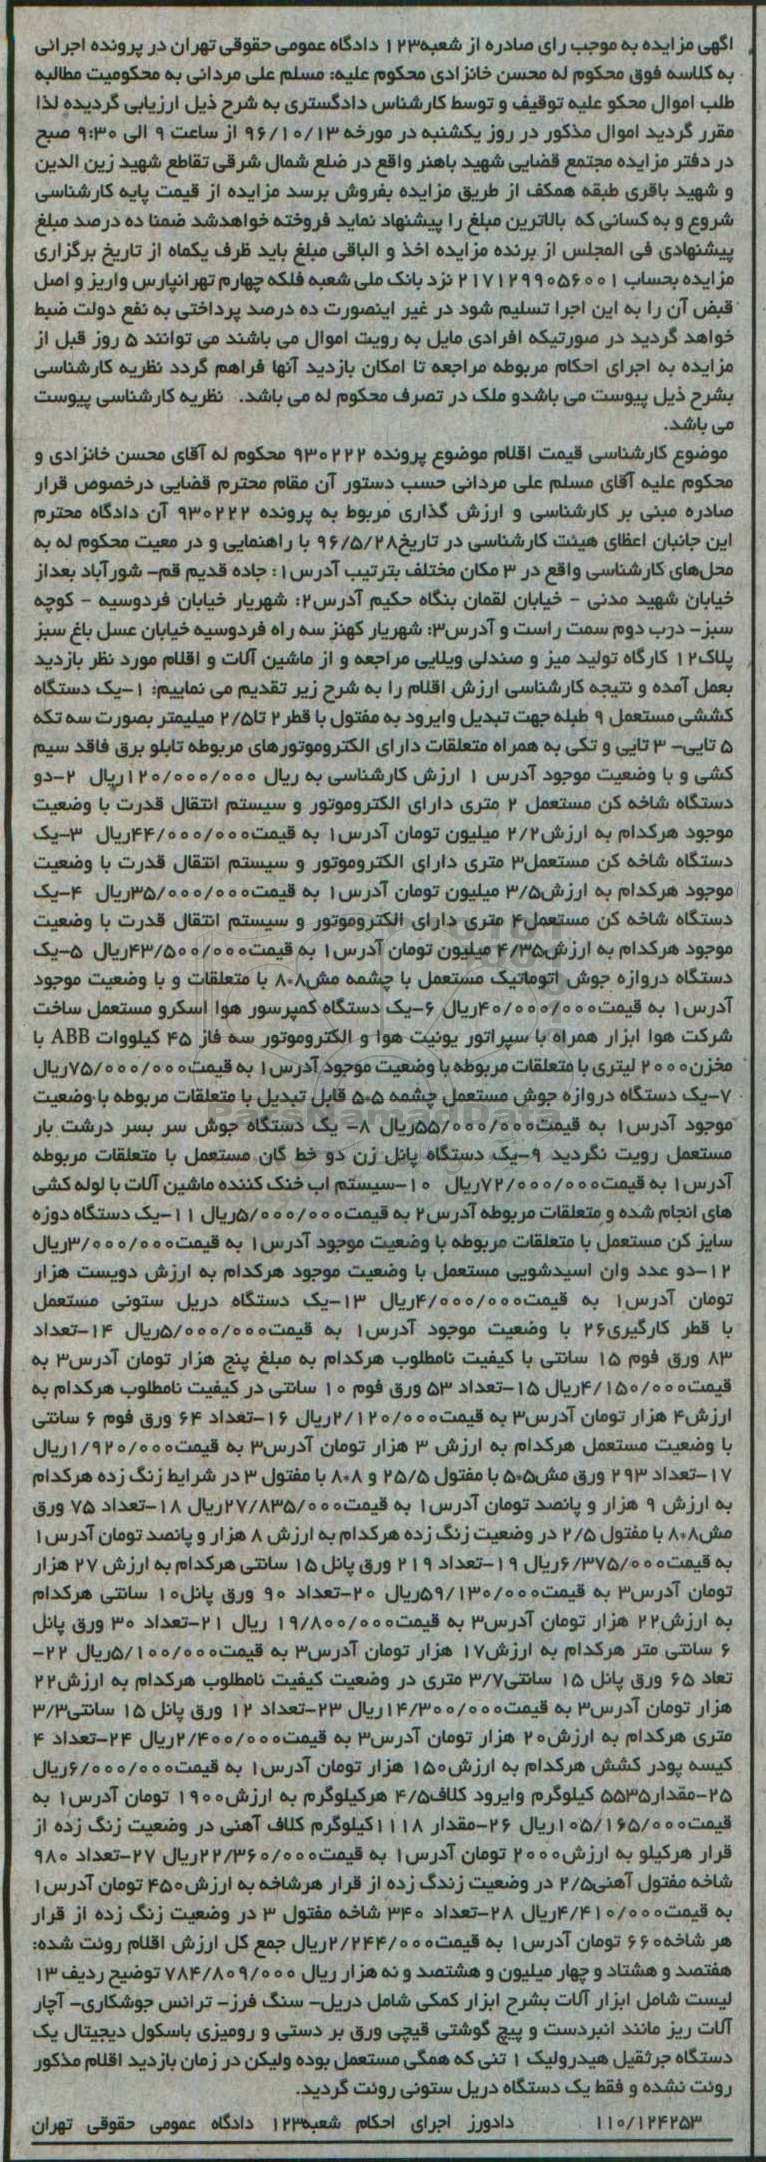 اگهی مزایده به موجب رای صادره از شعبه۱۲۳ دادگاه عمومی حقوقی تهران در پرونده اجرائی
به کلاسه فوق محکوم له محسن خانزادی محکوم علیه: مسلم علی مردانی به محکومیت مطالبه
طلب اموال محکو علیه توقیف و توسط کارشناس دادگستری به شرح ذیل ارزیابی گردیده لذا
مقرر گردید اموال مذکور در روز یکشنبه در مورخه ۹۶/۱۰/۱۳ از ساعت ۹ الی ۹:۳۰ صبح
در دفتر مزایده مجتمع قضایی شهید باهنر واقع در ضلع شمال شرقی تقاطع شهید زین الدین
و شهید باقری طبقه همکف از طریق مزایده بفروش برسد مزایده از قیمت پایه کارشناسی
شروع و به کسانی که بالاترین مبلغ را پیشنهاد نماید فروخته خواهدشد ضمنا ده درصد مبلغ
پیشنهادی فی المجلس از برنده مزایده اخذ و الباقی مبلغ باید ظرف یکماه از تاریخ برگزاری
مزایده بحساب ۲۱۷۱۲۹۹۰۵۶۰۰۱ نزد بانک ملی شعبه فلکه چهارم تهرانپارس واریز و اصل
قبض آن را به این اجرا تسلیم شود در غیر اینصورت ده درصد پرداختی به نفع دولت ضبط
خواهد گردید در صورتیکه افرادی مایل به رویت اموال می باشند می توانند ۵ روز قبل از
مزایده به اجرای احکام مربوطه مراجعه تا امکان بازدید آنها فراهم گردد نظریه کارشناسی
بشرح ذیل پیوست می باشدو ملک در تصرف محکوم له می باشد. نظریه کارشناسی پیوست
می باشد.
موضوع کارشناسی قیمت اقلام موضوع پرونده ۹۳۰۲۲۲ محکوم له آقای محسن خانزادی و
محکوم علیه آقای مسلم علی مردانی حسب دستور آن مقام محترم قضایی درخصوص قرار
صادره مبنی بر کارشناسی و ارزش گذاری مربوط به پرونده ۹۳۰۲۲۲ آن دادگاه محترم
این جانبان اعظای هیئت کارشناسی در تاریخ۹۶/۵/۲۸ با راهنمایی و در معیت محکوم له به
محل‌های کارشناسی واقع در ۳ مکان مختلف بترتیب آدرس۱: جاده قدیم قم- شورآباد بعداز
خیابان شهید مدنی - خیابان لقمان بنگاه حکیم آدرس۲: شهریار خیابان فردوسیه - کوچه
سبز- درب دوم سمت راست و آدرس۳: شهریار کهنز سه راه فردوسیه خیابان عسل باغ سبز
پلاک۱۲ کارگاه تولید میز و صندلی ویلایی مراجعه و از ماشین آلات و اقلام مورد نظر بازدید
بعمل آمده و نتیجه کارشناسی ارزش اقلام را به شرح زیر تقدیم می نماییم: ۱-یک دستگاه
کششی مستعمل ۹ طبله جهت تبدیل وایرود به مفتول با قطر۲ تا۲/۵ میلیمتر بصورت سه تکه
۵ تایی- ۳ تایی و تکی به همراه متعلقات دارای الکتروموتورهای مربوطه تابلو برق فاقد سیم
کشی و با وضعیت موجود آدرس ۱ ارزش کارشناسی به ریال ۱۲۰/۰۰۰/۰۰۰ریال ۲-دو
دستگاه شاخه کن مستعمل ۲ متری دارای الکتروموتور و سیستم انتقال قدرت با وضعیت
موجود هرکدام به ارزش۲/۲ میلیون تومان آدرس۱ به قیمت۴۴/۰۰۰/۰۰۰ریال ۳-یک
دستگاه شاخه کن مستعمل۳ متری دارای الکتروموتور و سیستم انتقال قدرت با وضعیت
موجود هرکدام به ارزش۳/۵ میلیون تومان آدرس۱ به قیمت۳۵/۰۰۰/۰۰۰ریال ۴-یک
دستگاه شاخه کن مستعمل۴ متری دارای الکتروموتور و سیستم انتقال قدرت با وضعیت
موجود هرکدام به ارزش۴/۳۵ میلیون تومان آدرس۱ به قیمت۴۳/۵۰۰/۰۰۰ریال ۵-یک
دستگاه دروازه جوش اتوماتیک مستعمل با چشمه مش۸*۸ با متعلقات و با وضعیت موجود
آدرس۱ به قیمت۴۰/۰۰۰/۰۰۰ریال ۶-یک دستگاه کمپرسور هوا اسکرو مستعمل ساخت
شرکت هوا ابزار همراه با سپراتور یونیت هوا و الکتروموتور سه فاز ۴۵ کیلووات ABB با
مخزن۲۰۰۰ لیتری با متعلقات مربوطه با وضعیت موجود آدرس۱ به قیمت۷۵/۰۰۰/۰۰۰ریال
۷-یک دستگاه دروازه جوش مستعمل چشمه ۵*۵ قابل تبدیل با متعلقات مربوطه با وضعیت
موجود آدرس۱ به قیمت۵۵/۰۰۰/۰۰۰ریال ۸- یک دستگاه جوش سر بسر درشت بار
مستعمل رویت نگردید ۹-یک دستگاه پانل زن دو خط گان مستعمل با متعلقات مربوطه
آدرس۱ به قیمت۷۲/۰۰۰/۰۰۰ریال ۱۰-سیستم اب خنک کننده ماشین آلات با لوله کشی
های انجام شده و متعلقات مربوطه آدرس۲ به قیمت۵/۰۰۰/۰۰۰ریال ۱۱-یک دستگاه دوزه
سایز کن مستعمل با متعلقات مربوطه با وضعیت موجود آدرس۱ به قیمت۳/۰۰۰/۰۰۰ریال
۱۲-دو عدد وان اسیدشویی مستعمل با وضعیت موجود هرکدام به ارزش دویست هزار
تومان آدرس۱ به قیمت۴/۰۰۰/۰۰۰ریال ۱۳-یک دستگاه دریل ستونی مستعمل
با قطر کارگیری۲۶ با وضعیت موجود آدرس۱ به قیمت۵/۰۰۰/۰۰۰ریال ۱۴-تعداد
۸۳ ورق فوم ۱۵ سانتی با کیفیت نامطلوب هرکدام به مبلغ پنج هزار تومان آدرس۳ به
قیمت۴/۱۵۰/۰۰۰ریال ۱۵-تعداد ۵۳ ورق فوم ۱۰ سانتی در کیفیت نامطلوب هرکدام به
ارزش۴ هزار تومان آدرس۳ به قیمت۲/۱۲۰/۰۰۰ریال ۱۶-تعداد ۶۴ ورق فوم ۶ سانتی
با وضعیت مستعمل هرکدام به ارزش ۳ هزار تومان آدرس۳ به قیمت۱/۹۲۰/۰۰۰ریال
۱۷-تعداد ۲۹۳ ورق مش۵*۵ با مفتول ۲۵/۵ و ۸*۸ با مفتول ۳ در شرایط زنگ زده هرکدام
به ارزش ۹ هزار و پانصد تومان آدرس۱ به قیمت۲۷/۸۳۵/۰۰۰ریال ۱۸-تعداد ۷۵ ورق
مش۸*۸ با مفتول ۲/۵ در وضعیت زنگ زده هرکدام به ارزش ۸ هزار و پانصد تومان آدرس۱
به قیمت۶/۳۷۵/۰۰۰ریال ۱۹-تعداد ۲۱۹ ورق پانل ۱۵ سانتی هرکدام به ارزش ۲۷ هزار
تومان آدرس۳ به قیمت۵۹/۱۳۰/۰۰۰ریال ۲۰-تعداد ۹۰ ورق پانل۱۰ سانتی هرکدام
به ارزش۲۲ هزار تومان آدرس۳ به قیمت۱۹/۸۰۰/۰۰۰ ریال ۲۱-تعداد ۳۰ ورق پانل
۶ سانتی متر هرکدام به ارزش۱۷ هزار تومان آدرس۳ به قیمت۵/۱۰۰/۰۰۰ریال ۲۲-
تعاد ۶۵ ورق پانل ۱۵ سانتی۳/۷ متری در وضعیت کیفیت نامطلوب هرکدام به ارزش۲۲
هزار تومان آدرس۳ به قیمت۱۴/۳۰۰/۰۰۰ریال ۲۳-تعداد ۱۲ ورق پانل ۱۵ سانتی۳/۳
متری هرکدام به ارزش۲۰ هزار تومان آدرس۳ به قیمت۲/۴۰۰/۰۰۰ریال ۲۴-تعداد ۴
کیسه پودر کشش هرکدام به ارزش۱۵۰ هزار تومان آدرس۱ به قیمت۶/۰۰۰/۰۰۰ریال
۲۵-مقدار۵۵۳۵ کیلوگرم وایرود کلاف۴/۵ هرکیلوگرم به ارزش۱۹۰۰ تومان آدرس۱ به
قیمت۱۰۵/۱۶۵/۰۰۰ریال ۲۶-مقدار ۱۱۱۸کیلوگرم کلاف آهنی در وضعیت زنگ زده از
قرار هرکیلو به ارزش۲۰۰۰ تومان آدرس۱ به قیمت۲۲/۳۶۰/۰۰۰ریال ۲۷-تعداد ۹۸۰
شاخه مفتول آهنی۲/۵ در وضعیت زندگ زده از قرار هرشاخه به ارزش۴۵۰ تومان آدرس۱
به قیمت۴/۴۱۰/۰۰۰ریال ۲۸-تعداد ۳۴۰ شاخه مفتول ۳ در وضعیت زنگ زده از قرار
هر شاخه۶۶۰ تومان آدرس۱ به قیمت۲/۲۴۴/۰۰۰ریال جمع کل ارزش اقلام روئت شده:
هفتصد و هشتاد و چهار میلیون و هشتصد و نه هزار ریال ۷۸۴/۸۰۹/۰۰۰ توضیح ردیف ۱۳
لیست شامل ابزار آلات بشرح ابزار کمکی شامل دریل- سنگ فرز- ترانس جوشکاری- آچار
آلات ریز مانند انبردست و پیچ گوشتی قیچی ورق بر دستی و رومیزی باسکول دیجیتال یک
دستگاه جرثقیل هیدرولیک ۱ تنی که همگی مستعمل بوده ولیکن در زمان بازدید اقلام مذکور
روئت نشده و فقط یک دستگاه دریل ستونی روئت گردید.
۱۱۰/۱۲۴۲۵۳ دادورز اجرای احکام شعبه۱۲۳ دادگاه عمومی حقوقی تهران
ParsNamadData